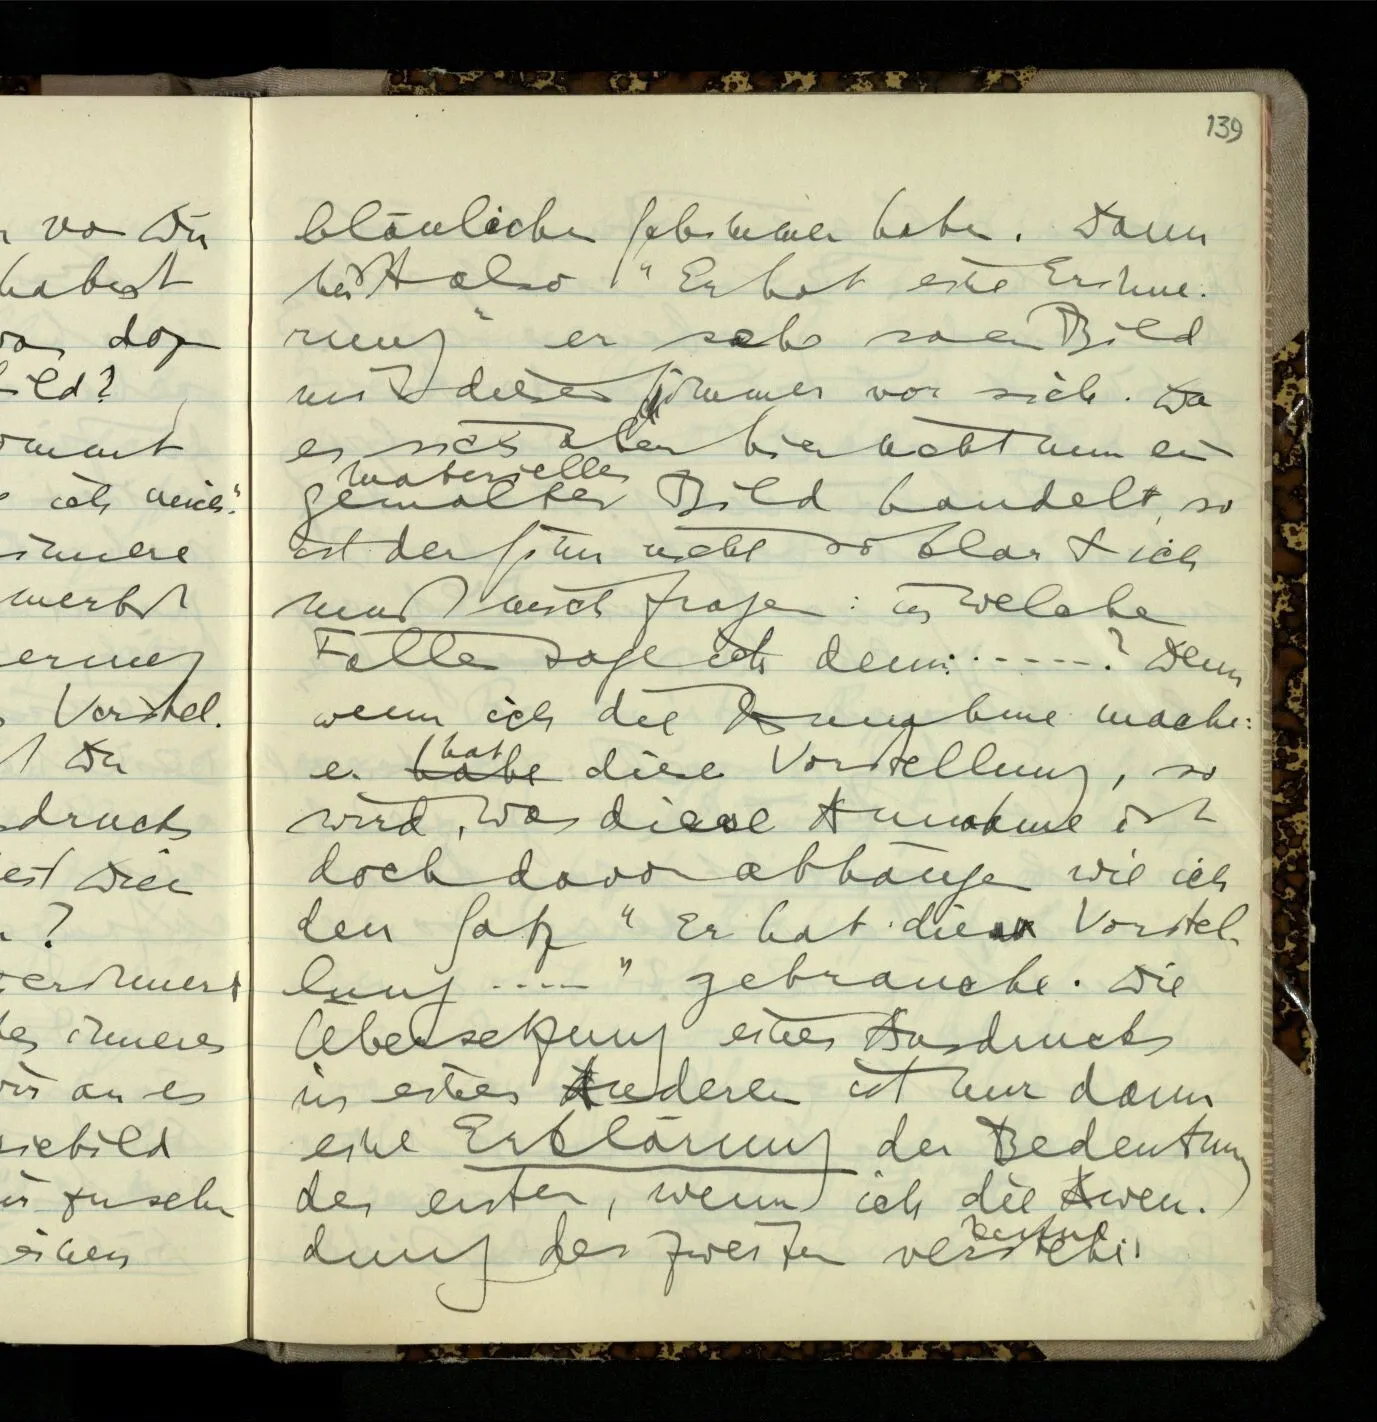 139
n von Dir
habest
vor das
ild?
ommt
ich mich"
innere
merkst
erung
s Vorstel-
Du
sdrucks
Dein
n?
erinnert
des inneres
wir an es
siebild
zu sehen
einen
bläulichen Schimmer habe. Dann
heißt also "Er hat eine Erinne-
rung" er sehe so ein Bild
mit diesem Schimmer vor sich. Da
es sich aber hier nicht um ein
materielles
gemaltes Bild handelt, so
ist der Sinn nicht so klar & ich
muß mich fragen: in welchem
Falle sage ich denn: -----? Denn
wenn ich die Annahme mache:
hat
er habe diese Vorstellung, so
wird, was diese Annahme ist
doch davon abhängen wie ich
den Satz "Er hat diese Vorstel-
lung -----" gebrauche. Die
Übersetzung eines Ausdrucks
in einen Anderen ist nur dann
eine Erklärung der Bedeutung
des ersten, wenn ich die Anwen-
dung des zweiten verstehe